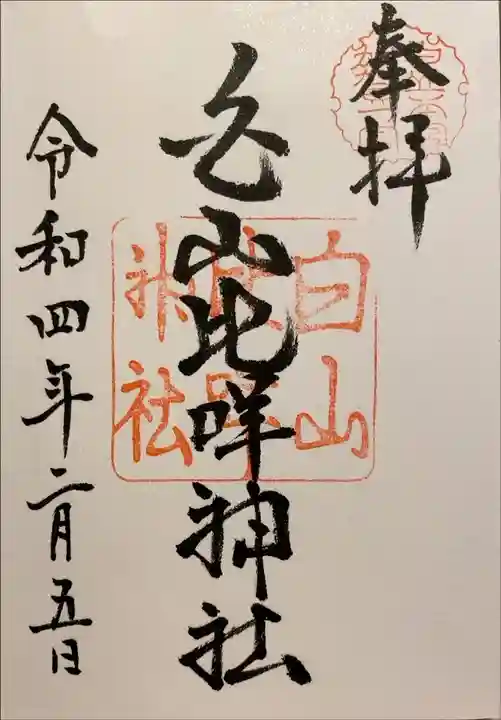 奉拝
白山比咩神社
令和四年二月五日
白山
比咩
神社